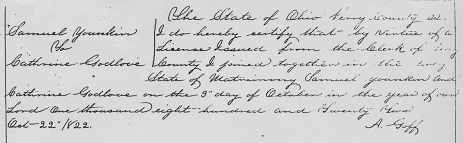 The State of Ohio Perry County ss.
Samuel Younkin I do hereby certify that by virtue of a
& License Issued from the Clerk of
Cathrine Godlove County I joined together in the holy
State of Matrimony Samuel Younkin and
Cathrine Godlove on the 3 day of October in the year of our
Lord One thousand eight hundred and Twenty two
Oct 22 1822. A. Goff